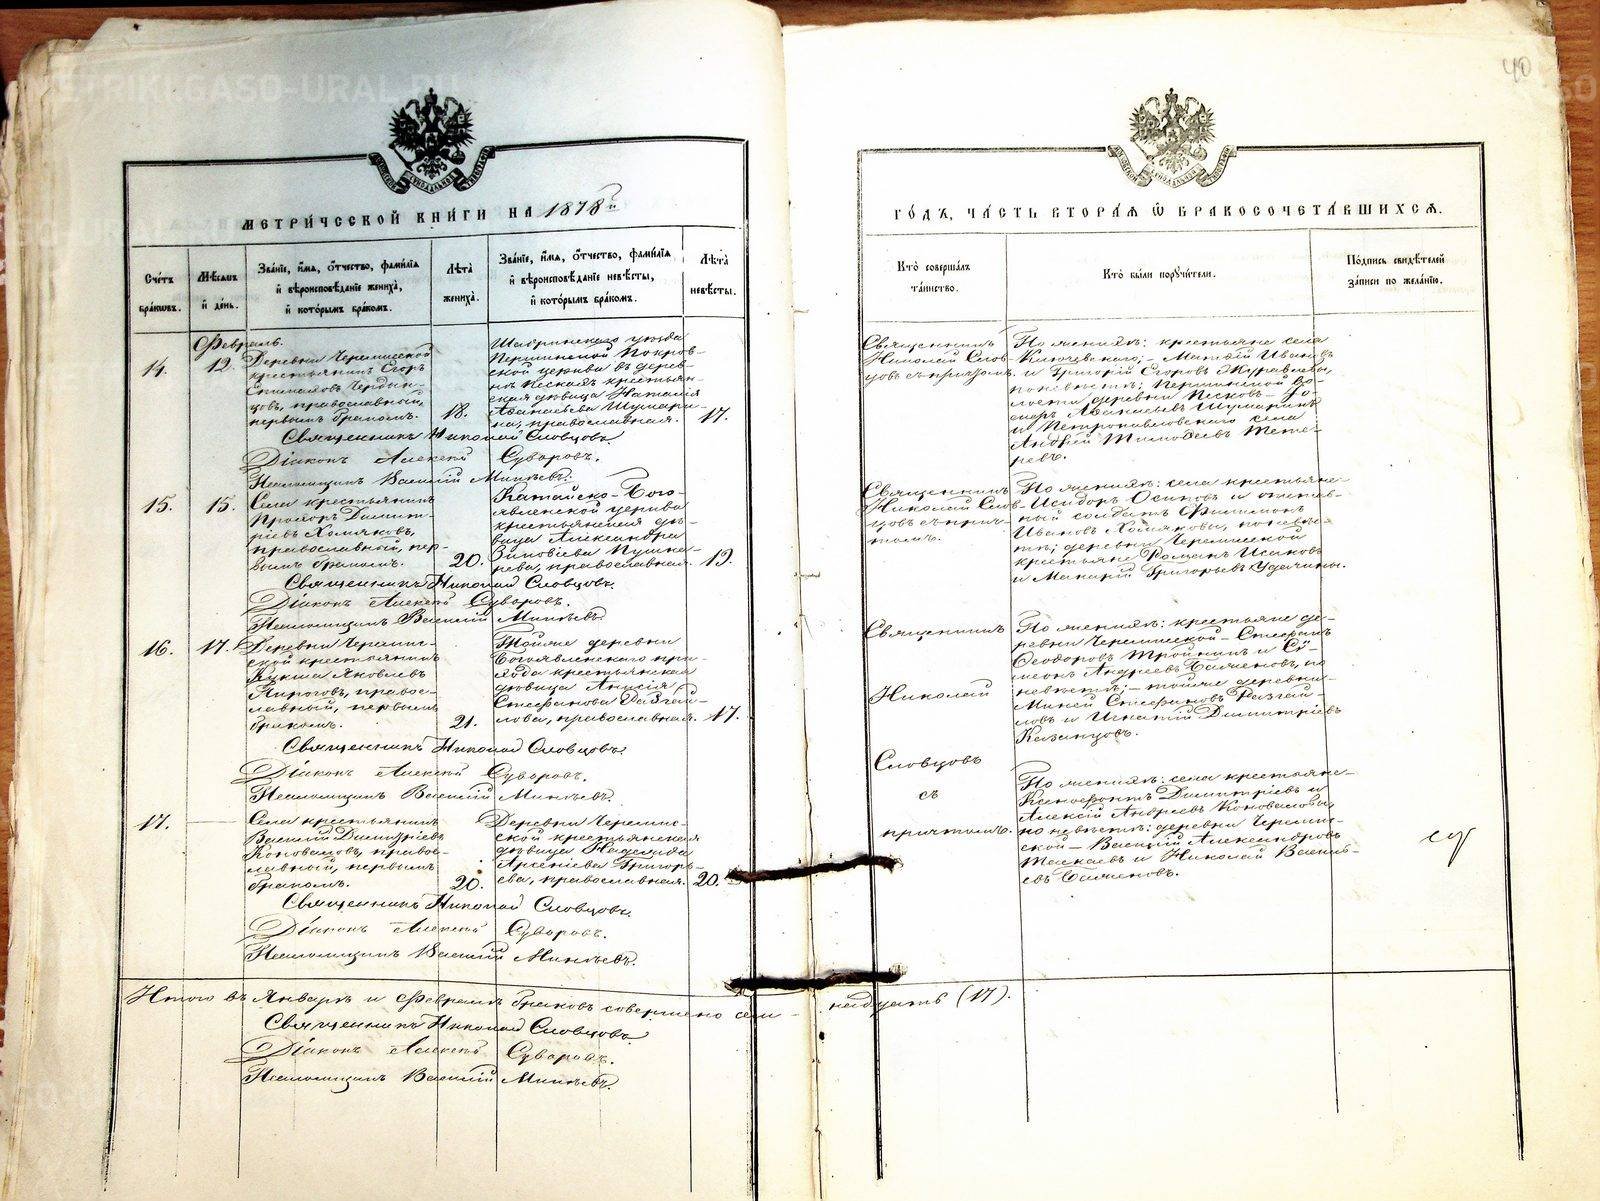 40
МЕТРИЧЕССКОЙ КНИГИ НА 1878й
ГОДЪ, ЧАСТЬ ВТОРАЯ Ѿ БРАКОСОЧЕТАВШИХСЯ.
Счетъ браковъ.
Мѣсяцъ и день.
Званіе, имя, отчество, фамилія
и вѣроисповѣданіе жениха,
и которымъ бракомъ.
Лѣта жениха.
Званіе, имя, отчество, фамилія
и вѣроисповѣданіе невѣсты,
и которымъ бракомъ.
Лѣта невѣсты.
Кто совершалъ таинство.
Кто были поручители.
Подпись свидѣтелей записи по желанію.
Февраль.
14.
12.
Деревни Черемисской
крестьянинъ Егоръ
цовъ, православный,
первымъ бракомъ.
18.
Шадринскаго уѣзда
Першинской Покров-
ской церкви въ дерев-
нѣ Пескахъ крестьян-
ская дѣвица Наталія
Аѳанасьева Шумари-
на, православная.
17.
Священникъ
Николай Слов-
цовъ съ причтомъ.
По женихѣ: крестьяне села
Ключевскаго; Матѳій Ивановъ
и Григорій Егоровъ Журавлевы,
по невѣстѣ; Першинской во-
лости деревни Песковъ – Ѳо-
Аѳанасьевъ Шумаринъ
и Петропавловскаго села
Андрей Тимоѳеевъ Тете-
ревъ.
Священникъ Николай Словцовъ
Діаконъ Алексѣй Суворовъ.
Псаломщикъ Василій Минѣевъ.
15.
15.
Села крестьянинъ
Прохоръ Димит-
ріевъ Хомяковъ,
православный, пер-
вымъ бракомъ.
20.
Катайско-Бого-
явленской церкви
крестьянская дѣ-
вица Александра
Зиновіева Пушка-
рева, православная.
19.
Священникъ
Николай Слов-
цовъ съ прич-
томъ.
По женихѣ: села крестьяне-
Исидоръ Осиповъ и отстав-
ный солдатъ Филимонъ
Ивановъ Хомяковы, по невѣс-
тѣ; деревни Черемисской
крестьяне Романъ Исаковъ
и Макарій Григорьевъ Удачины.
Священникъ Николай Словцовъ.
Діаконъ Алексѣй Суворовъ.
Псаломщикъ Василій Минѣевъ.
16.
17.
Деревни Черемис-
ской крестьянинъ
Яковлевъ
Пироговъ, право-
славный, первымъ
бракомъ.
21.
Тойже деревни
Богоявленскаго при-
хода крестьянская
дѣвица Анисія
Стефанова Разгай-
лова, православная.
17.
Священникъ
Николай
Словцовъ
съ
причтомъ.
По женихѣ: крестьяне де-
ревни Черемисской – Стефанъ
Ѳеодоровъ Тройнинъ и Си-
меонъ Андреевъ Баженовъ, по
невѣстѣ; – тойже деревни-
Миней Стефановъ Разгай-
ловъ и Игнатій Димитріевъ
Казанцовъ.
Священникъ Николай Словцовъ.
Діаконъ Алексѣй Суворовъ.
Псаломщикъ Василій Минѣевъ.
17.
Села крестьянинъ
Василій Димитріевъ
Коноваловъ, право-
славный, первымъ
бракомъ.
20.
Деревни Черемис-
ской крестьянская
дѣвица Надежда
Арсеніева Григорь-
ева, православная.
20.
По женихѣ: села крестьяне-
Ксенофонтъ Димитріевъ и
Алексій Андреевъ Коноваловы
по невѣстѣ: деревни Черемис-
ской – Василій Александровъ
и Николай Василь-
евъ
Священникъ Николай Словцовъ
Діаконъ Алексѣй Суворовъ.
Псаломщикъ Василій Минѣевъ.
Итого въ Январѣ и Февралѣ браковъ совершено сем-надцать (17).
Священникъ Николай Словцовъ
Діаконъ Алексѣй Суворовъ.
Псаломщикъ Василій Минѣевъ.